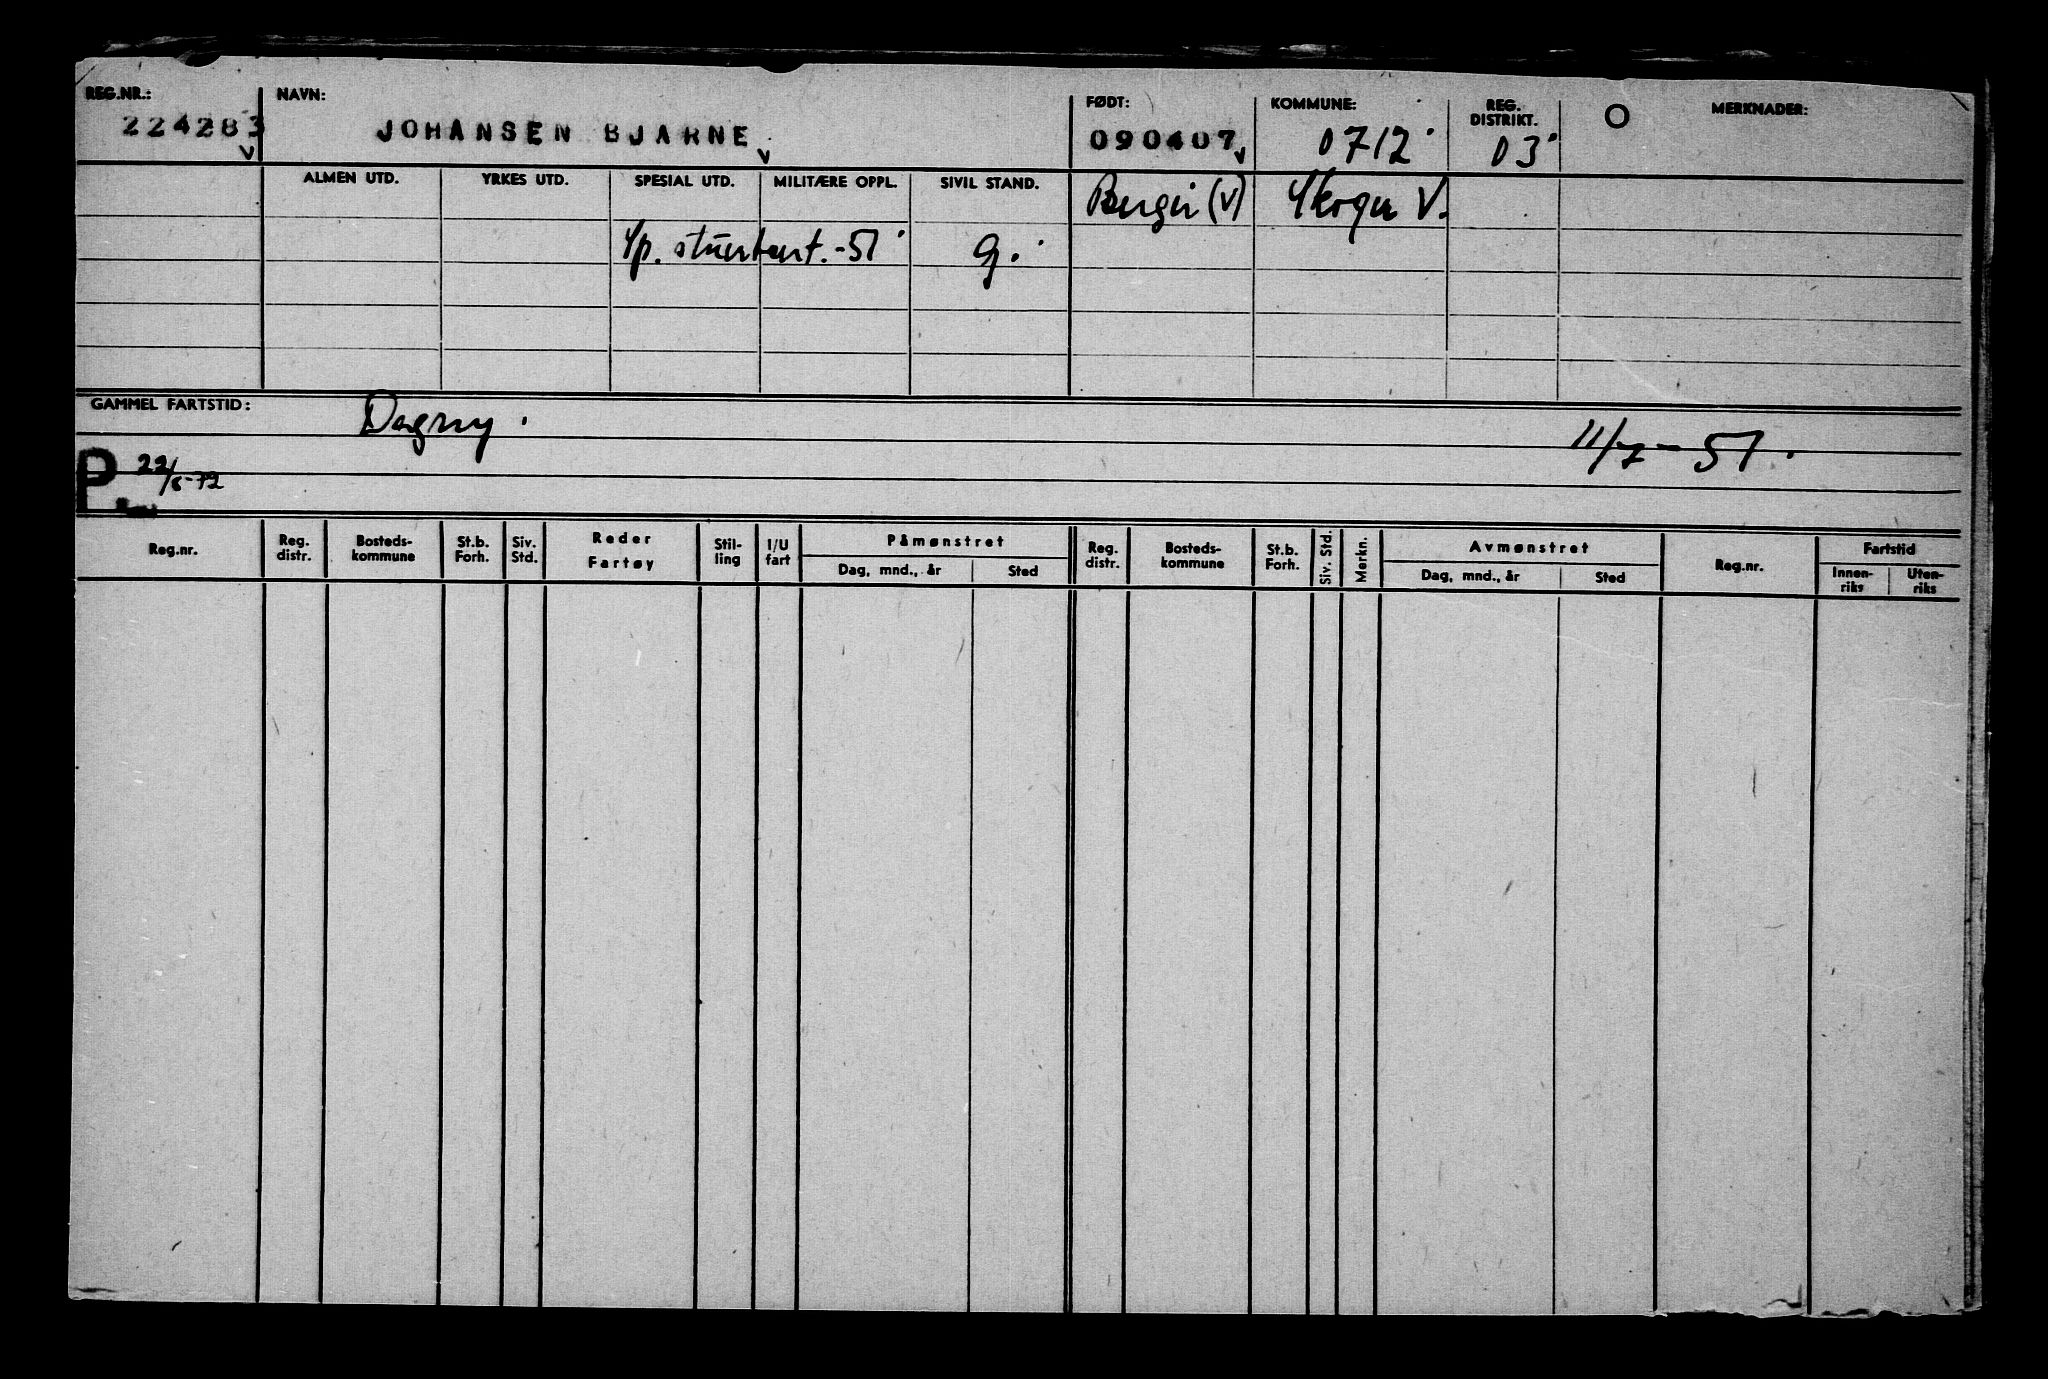 REG.NR.: NAVN: FØDT: KOMMUNE: REG. DISTRIKT. MERKNADER:
224283 JOHANSEN BJARNE 090407 0712 03
ALMEN UTD. YRKES UTD. SPESIAL UTD. MILITÆRE OPPL. SIVIL STAND. Berger (V) Skoger V.
Sp. -51 g.
GAMMEL FARTSTID: Dagny.
11/7-51.
P 22/6-72
Reg.nr. Reg. distr. Bosteds-kommune St.b. Forh. Siv. Std. Reder Fartøy Stil-ling I/U fart Påmønstret Reg. distr. Bosteds-kommune St.b. Forh. Siv. Std. Merkn. Avmønstret Reg.nr. Fartstid
Dag, mnd., år Sted Dag, mnd., år Sted Innen-riks Uten-riks